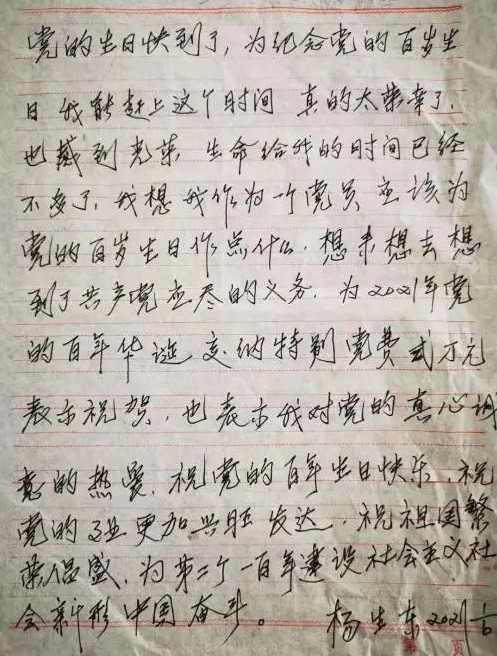 党的生日快到了，为纪念党的百岁生
日 我能赶上这个时间 真的太荣幸了.
也感到光荣 生命给我的时间已经
不多了，我想我作为一个党员 应该为
党的百岁生日作点什么. 想来想去 想
到了共产党应尽的义务. 为2021年党
的百年华诞 交纳特别党费 弍万元
表示祝贺. 也表示我对党的真心诚
意的热爱. 祝党的百年生日快乐. 祝
党的 更加兴旺发达. 祝祖国繁
荣昌盛. 为第二个一百年建设社会主义社
会新 中国奋斗。 杨生东 2021
页